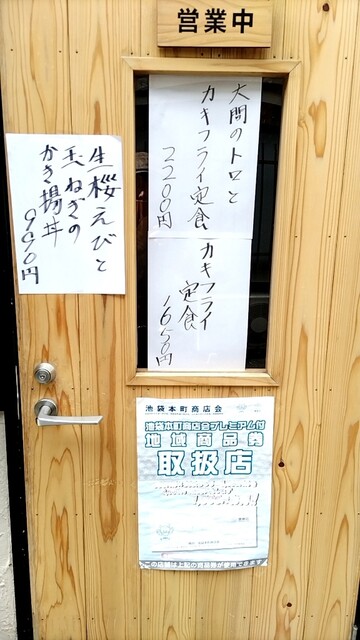 営業中
大間のトロと
カキフライ定食
2200円
カキフライ
定食
1650円
生桜えびと
玉ねぎの
かき揚丼
990円
池袋本町商店会
池袋本町商店会プレミアム付
地域商品券
取扱店
この店舗は上記の商品券が使用できます